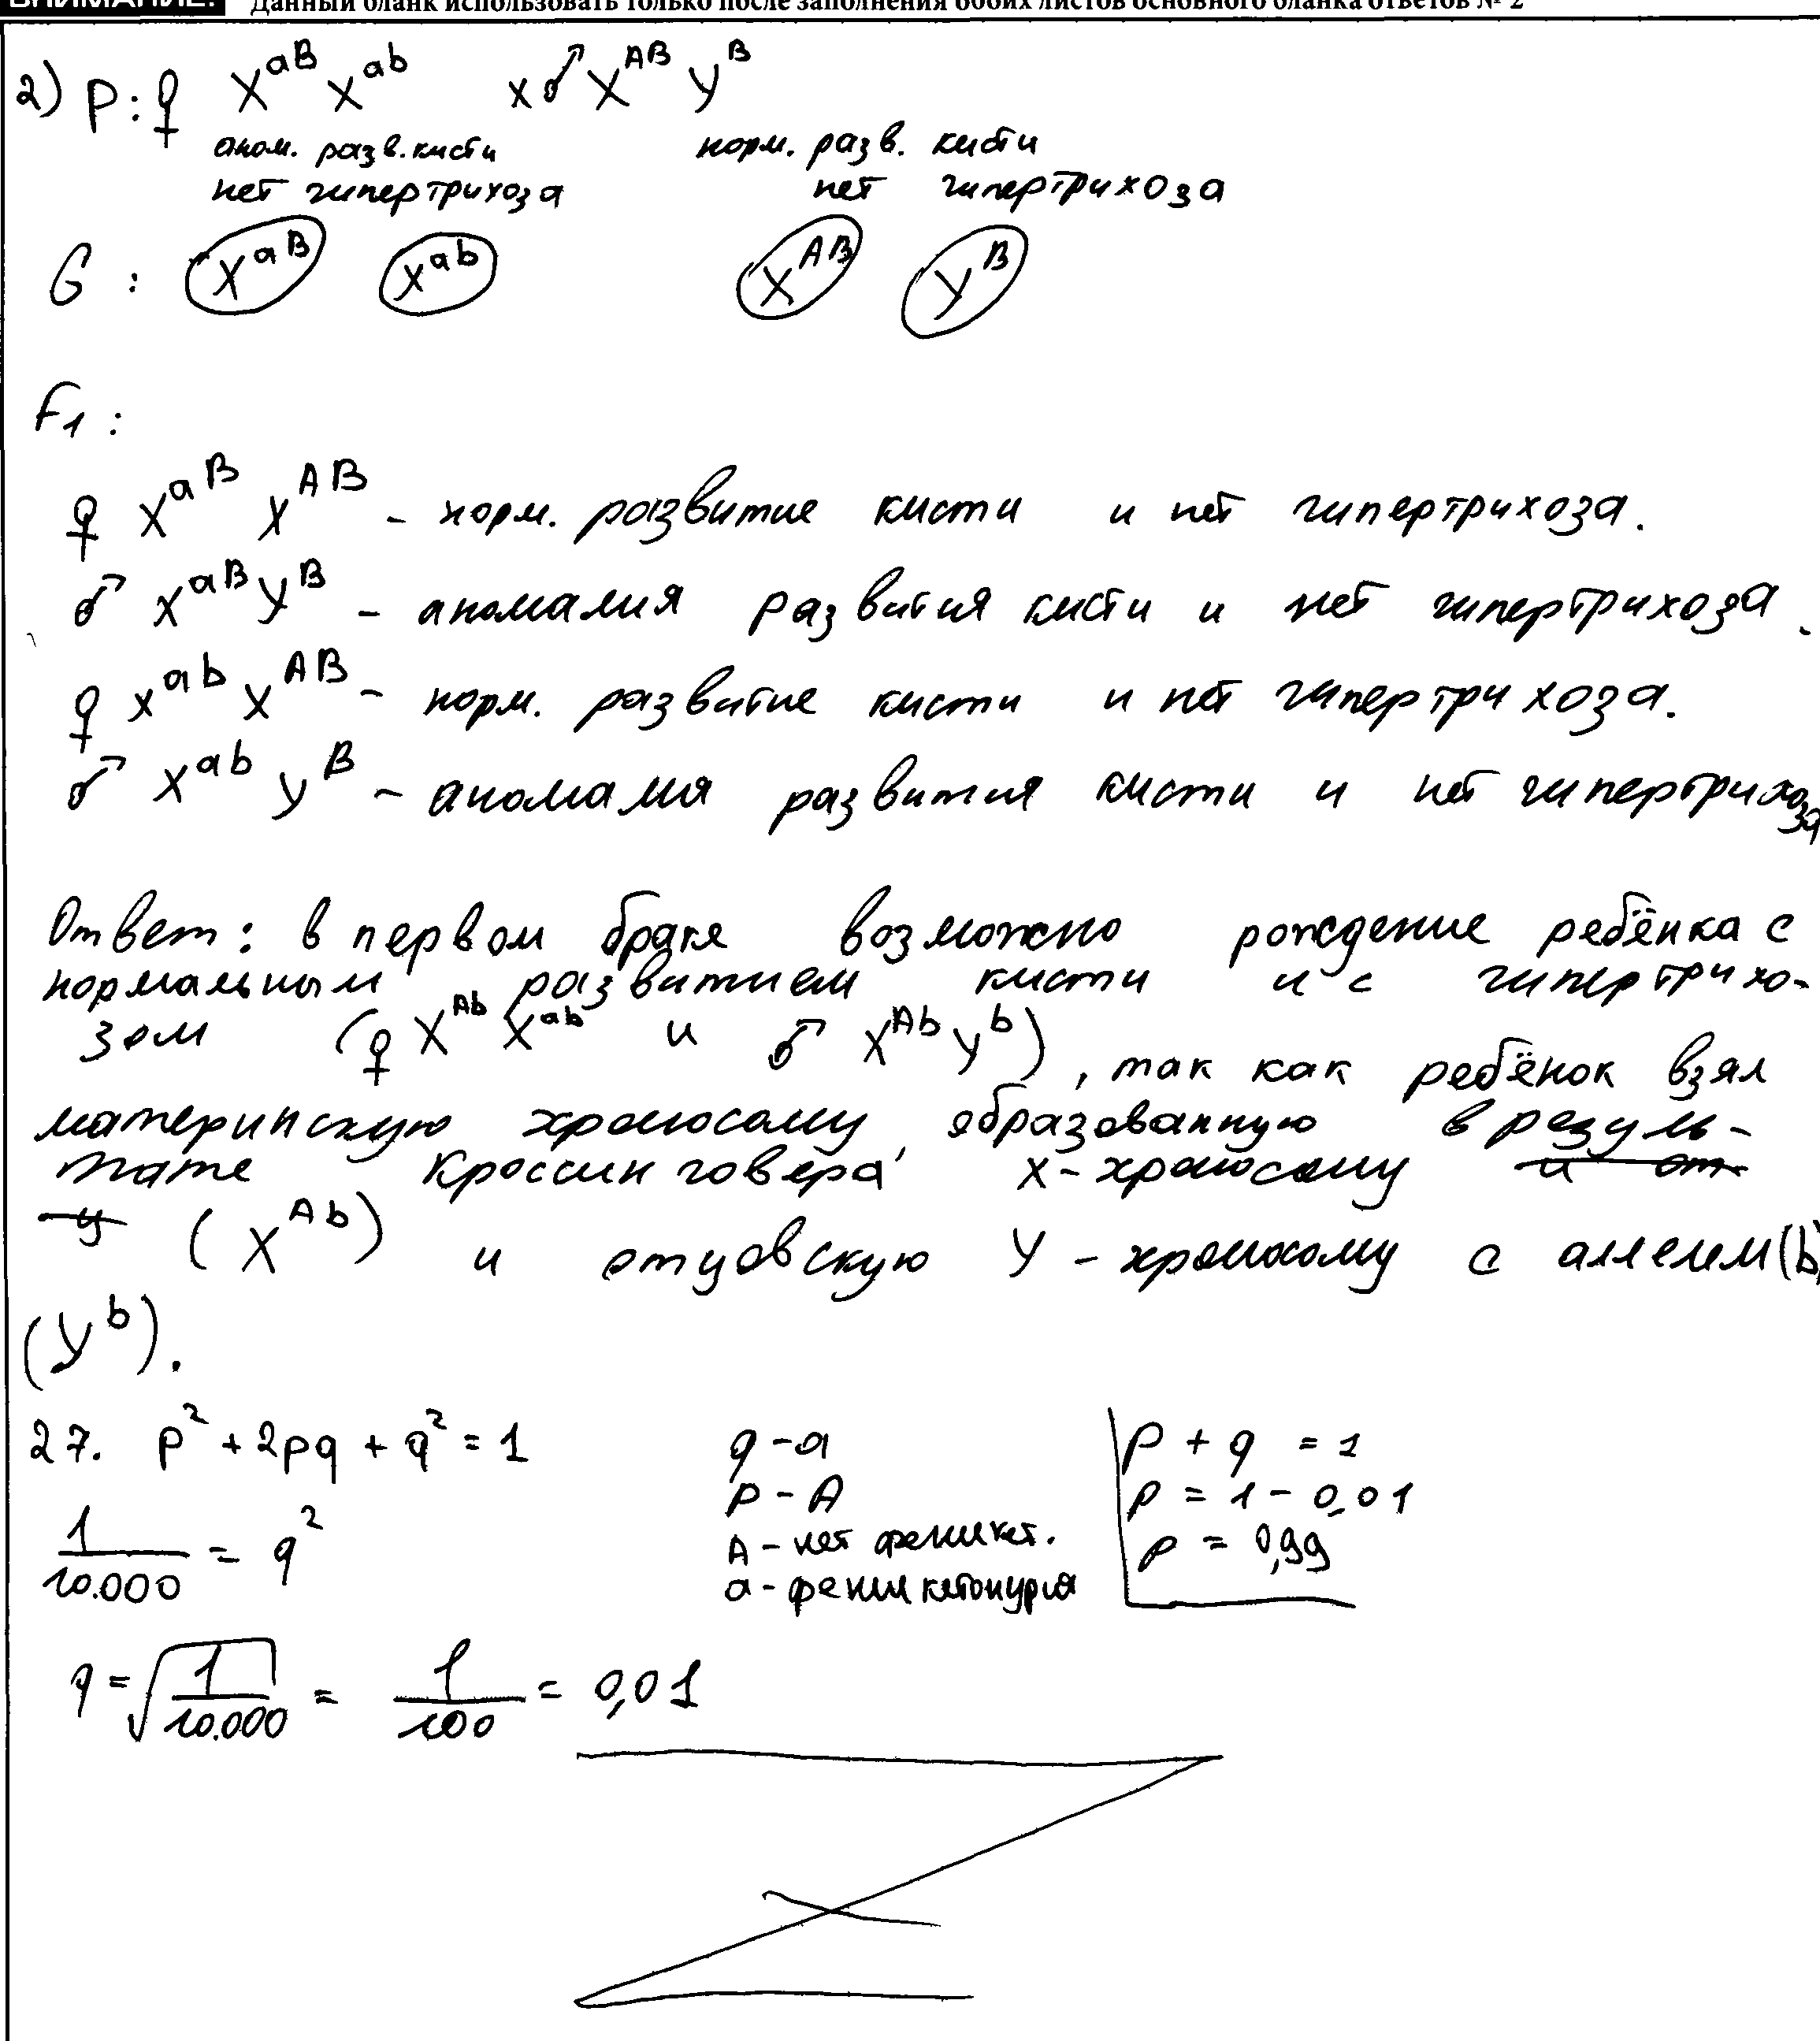 ВНИМАНИЕ! Данный бланк использовать только после заполнения обоих листов основного бланка ответов № 2
2) P: ♀ X^aB X^ab x ♂ X^AB Y^B
аном. разв. кисти норм. разв. кисти
нет гипертрихоза нет гипертрихоза
G : X^aB X^ab X^AB Y^B
F1 :
♀ X^aB X^AB - норм. развитие кисти и нет гипертрихоза.
♂ X^aB Y^B - аномалия развития кисти и нет гипертрихоза.
♀ X^ab X^AB - норм. развитие кисти и нет гипертрихоза.
♂ X^ab Y^B - аномалия развития кисти и нет гипертрихоза
Ответ: в первом браке возможно рождение ребёнка с
нормальным развитием кисти и с гипертрихо-
зом (♀ X^Ab X^ab и ♂ X^Ab Y^b), так как ребёнок взял
материнскую хромосому, образованную в резуль-
тате кроссинговера X-хромосому и от
у (X^Ab) и отцовскую Y-хромосому с аллелем (b)
(Y^b).
27. p² + 2pq + q² = 1 q - a p + q = 1
p - A p = 1 - 0,01
1/10.000 = q² A - нет фенилкет. p = 0,99
a - фенилкетонурия
q = √1/10.000 = 1/100 = 0,01